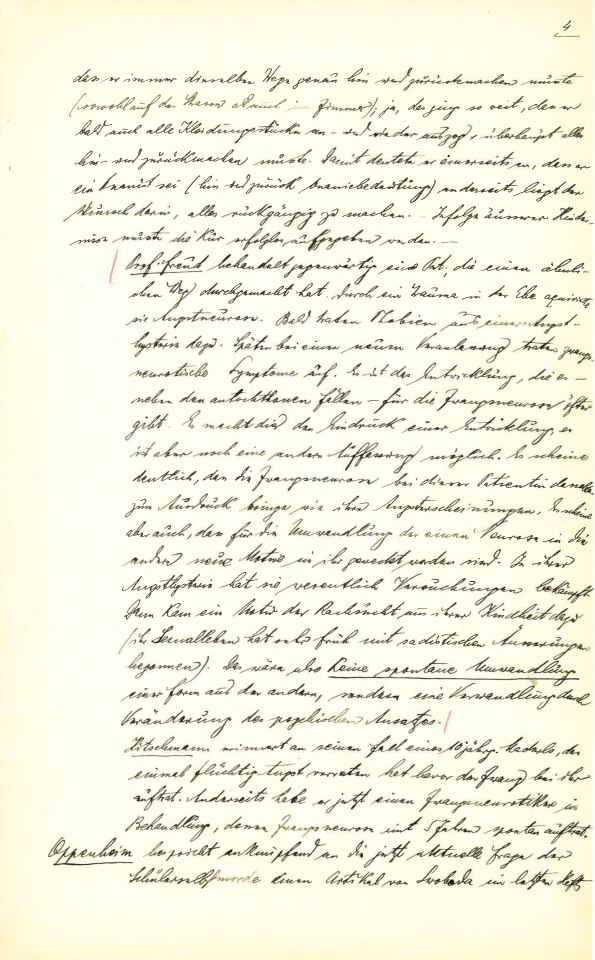 4
dass er immer dieselben Wege genau hin und zurückmachen musste
(sowohl auf der Strasse als auch im Zimmer); ja, das ging so weit, dass er
bald auch alle Kleidungsstücke an- und wieder auszog, überhaupt alles
hin- und zurückmachen musste. Damit deutete er einerseits an, dass er
ein sei (hin und zurück ) anderseits liegt der
Wunsch darin, alles rückgängig zu machen. – Infolge äusserer Hinder-
nisse musste die Kur erfolglos aufgegeben werden. –
Prof. Freud behandelt gegenwärtig eine Pat., die einen ähnli-
chen Weg durchgemacht hat. Durch ein Trauma in der Ehe aquirierte
sie Angstneurose. Bald traten Phobien aus einer Angst-
hysterie dazu. Später bei einer neuen Veranlassung traten zwangs-
neurotische Symptome auf. Es ist das Entwicklung, die es –
neben den autochthonen Fällen – für die Zwangsneurose öfter
gibt. Es macht dies den Eindruck einer Entwicklung, es
ist aber noch eine andere Auffassung möglich. Es scheine
deutlich, dass die Zwangsneurose bei dieser Patientin dasselbe
zum Ausdruck bringe wie ihre Angsterscheinungen. Es scheine
aber auch, dass für die Umwandlung der einen Neurose in die
andere neue Motive in ihr geweckt worden sind. In ihrer
Angsthysterie hat sie wesentlich Versuchungen bekämpft.
Dann kam ein Motiv der Rachsucht aus ihrer Kindheit dazu
(ihr Sexualleben hat sehr früh mit sadistischen Äusserungen
begonnen). Das wäre also keine spontane Umwandlung
einer Form aus der andern, sondern eine Verwandlung durch
Veränderung des psychischen Ansatzes.
Hitschmann erinnert an seinen Fall eines 10jährg. Mäderls, das
einmal flüchtig Angst verraten hat bevor der Zwang bei ihr
auftrat. Anderseits habe er jetzt einen Zwangsneurotiker in
Behandlung, dessen Zwangsneurose mit 5 Jahren spontan auftrat.
Oppenheim bespricht anknüpfend an die jetzt aktuelle Frage der
Schülerselbstmorde einen Artikel von Swoboda im letzten Heft